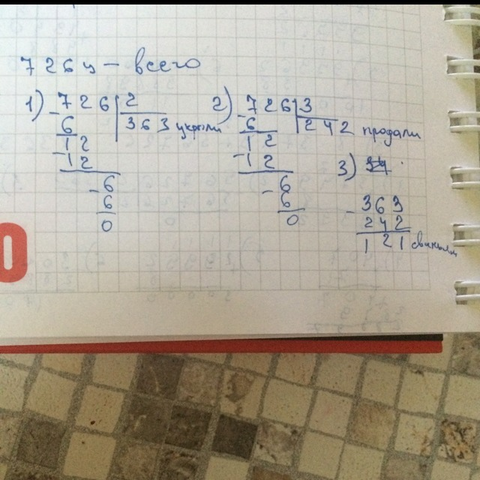 726 ц — всего
1) 726 | 2
- 6 363
12
- 12
- 6
6
0
2) 726 | 3
- 6 242 продали
12
- 12
- 6
6
0
3)
- 363
242
121